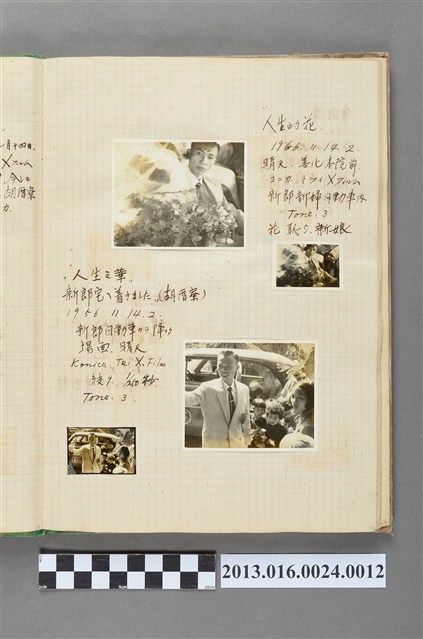 一月十四日.
Xフィルム
胡厝寮
人生的花.
1966.11.14.2.
晴天. 善化本院前
コニカ トライXフィルム
新郎新婦自動車内
Tone. 3
花恥じ. 新娘
"人生之華"
新郎宅へ着きました.(胡厝寮)
1956.11.14.2.
新郎自動車カラ降り
場面. 晴天
Konica Tri X. Film
絞り. 秒
Tone. 3.
2013.016.0024.0012